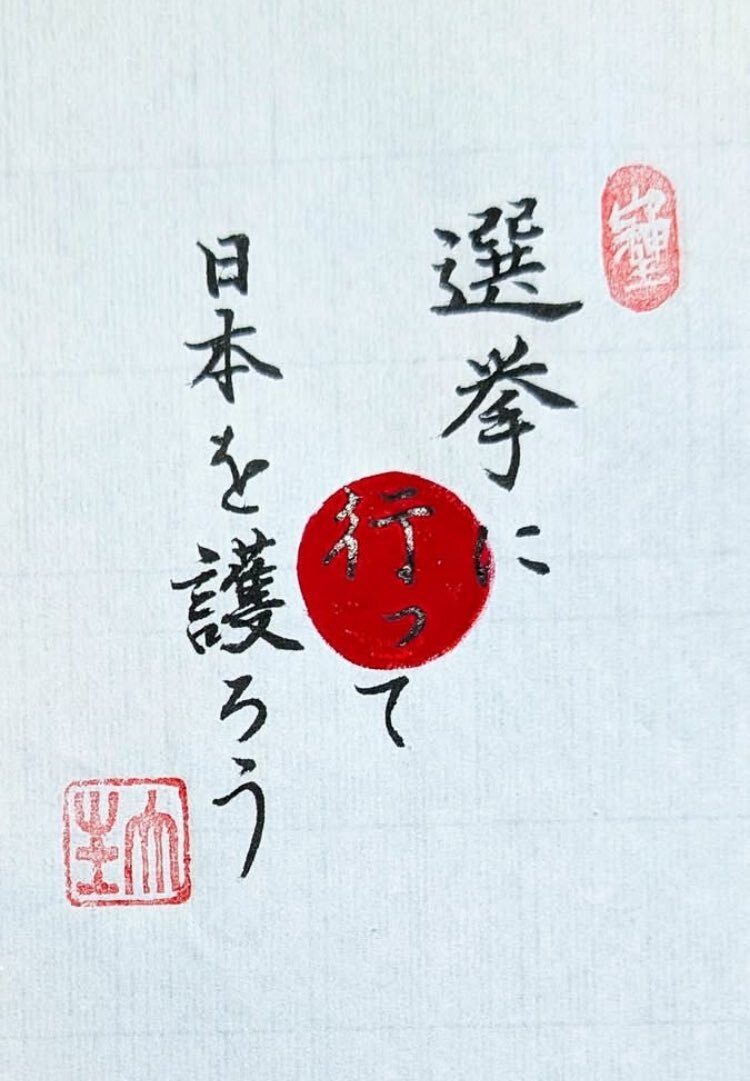 選挙に
行って
日本を護ろう